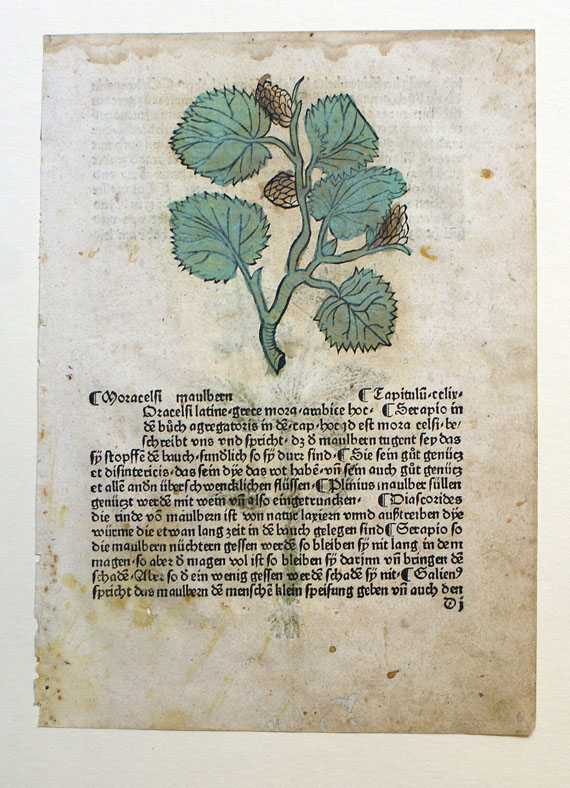 ¶Moracelsi maulbern ¶Capitulū·cclix·
Oracelsi latine·grece mora·arabice hoc· ¶Serapio in
dē bůch agregatoris in dē·cap·hoc id est mora celsi·be-
schreibt vns vnd spricht·dz d maulbern tugent sey das
sÿ stopffē dē bauch·sundlich so sÿ durr sind·¶Sie sein gůt genüczt
et disintericis·das sein dÿe das rot habē·vn̄ sein auch gůt genüczt
et allē andn̄ überschwencklichen flüssen·¶Plinius maulber süllen
genüczt werdē mit wein vn̄ also eingetruncken· ¶Diascorides
die rinde vō maulbern ist von natur laxiern vnnd außtreiben dÿe
würme die etwan lang zeit in dē bauch gelegen sind¶Serapio so
die maulbern nüchtern gessen werdē so bleiben sÿ nit lang in dem
magen·so aber d magen vol ist so bleiben sÿ darjnn vn̄ bringen dē
schadē·Aber so d ein wenig gessen werdē schadē sÿ nit·¶Galienꝰ
spricht das maulbern dē menschē klein speisung geben vn̄ auch den
D j